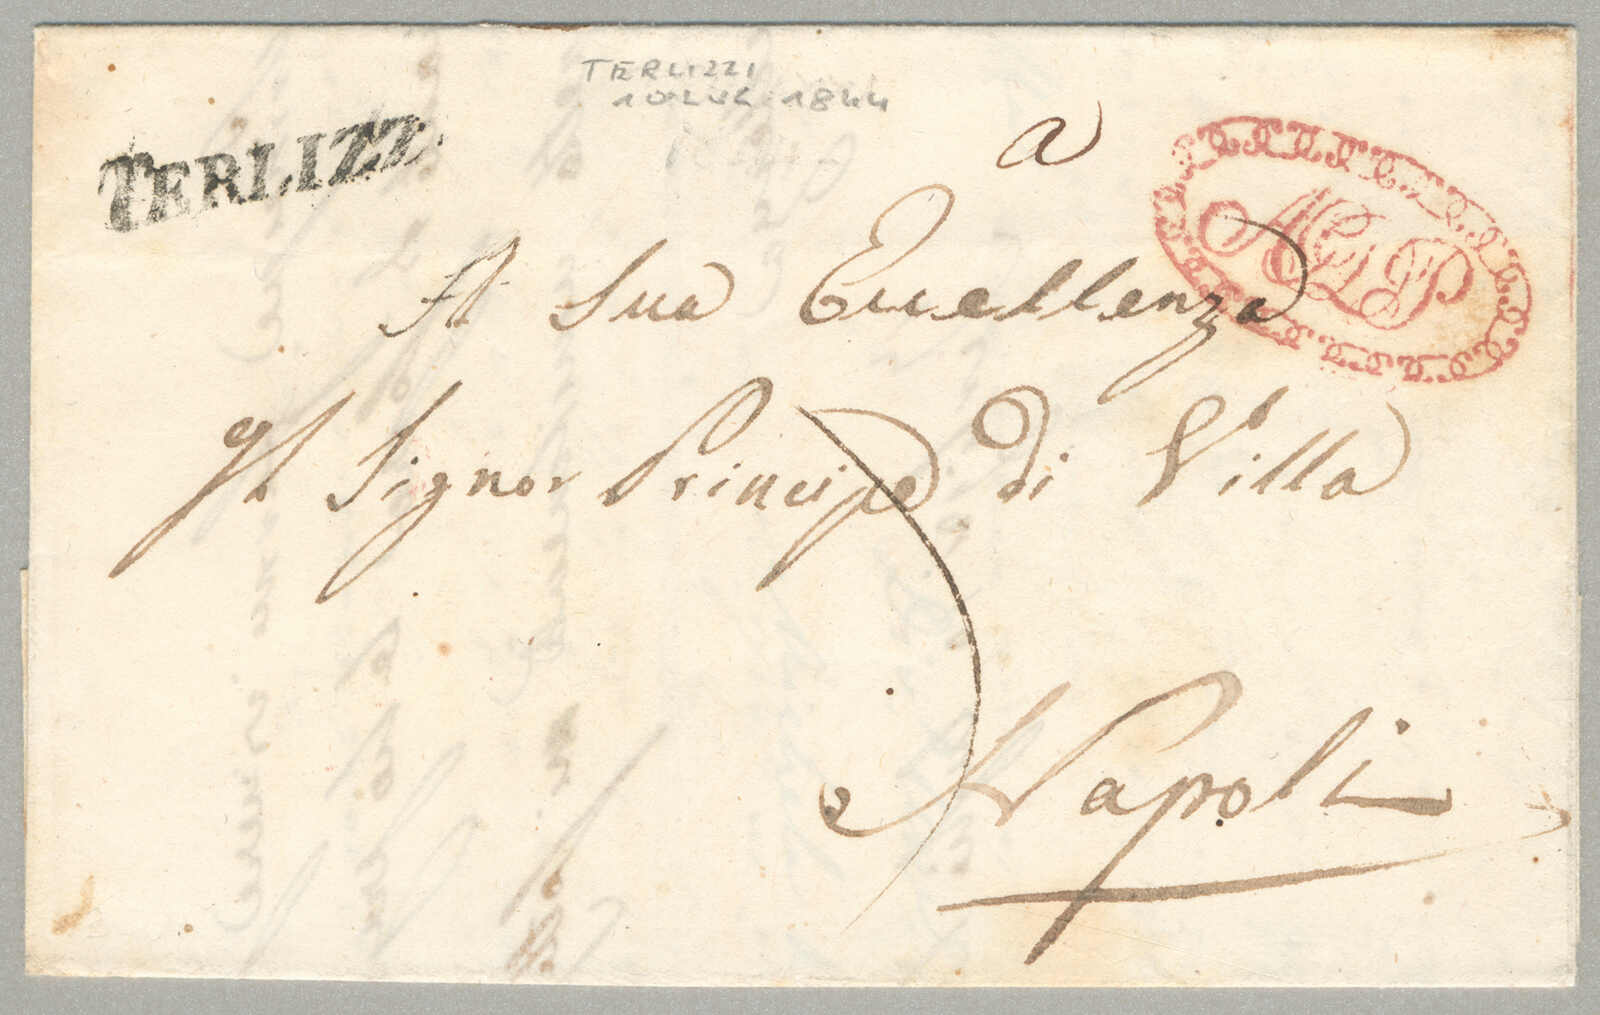 TERLIZZI
10 LUG 1844
TERLIZZI
a
AGDP
A Sua Eccellenza
Il Signor Principe di Villa
Napoli